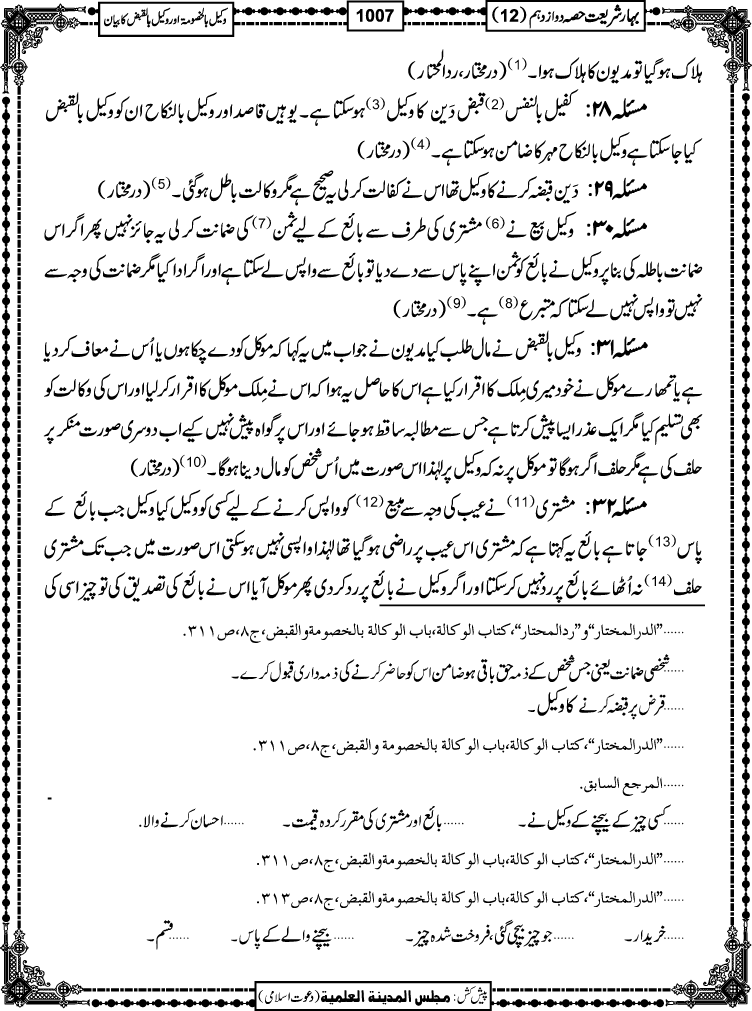 بہار شریعت حصہ دوازدہم (12)
1007
وکیل بالخصومۃ اور وکیل بالقبض کا بیان
ہلاک ہوگیا تو مدیون کا ہلاک ہوا۔(1) (درمختار، ردالمحتار)
مسئلہ ۲۸: کفیل بالنفس(2) قبض دَین کا وکیل(3) ہوسکتا ہے۔ یوہیں قاصد اور وکیل بالنکاح ان کو وکیل بالقبض
کیا جاسکتا ہے وکیل بالنکاح مہر کا ضامن ہوسکتا ہے۔(4) (درمختار)
مسئلہ ۲۹: دَین قبضہ کرنے کا وکیل تھا اس نے کفالت کرلی یہ صحیح ہے مگر وکالت باطل ہوگئی۔(5) (درمختار)
مسئلہ ۳۰: وکیل بیع نے(6) مشتری کی طرف سے بائع کے لیے ثمن(7) کی ضمانت کرلی یہ جائز نہیں پھر اگر اس
ضمانت باطلہ کی بنا پر وکیل نے بائع کو ثمن اپنے پاس سے دے دیا تو بائع سے واپس لے سکتا ہے اور اگر ادا کیا مگر ضمانت کی وجہ سے
نہیں تو واپس نہیں لے سکتا کہ متبرع(8) ہے۔(9) (درمختار)
مسئلہ ۳۱: وکیل بالقبض نے مال طلب کیا مدیون نے جواب میں یہ کہا کہ موکل کو دے چکا ہوں یا اُس نے معاف کردیا
ہے یا تمھارے موکل نے خود میری مِلک کا اقرار کیا ہے اس کا حاصل یہ ہوا کہ اس نے مِلک موکل کا اقرار کرلیا اور اس کی وکالت کو
بھی تسلیم کیا مگر ایک عذر ایسا پیش کرتا ہے جس سے مطالبہ ساقط ہوجائے اور اس پر گواہ پیش نہیں کیے اب دوسری صورت منکر پر
حلف کی ہے مگر حلف اگر ہوگا تو موکل پر نہ کہ وکیل پر لہٰذا اس صورت میں اُس شخص کو مال دینا ہوگا۔(10) (درمختار)
مسئلہ ۳۲: مشتری(11) نے عیب کی وجہ سے مبیع(12) کو واپس کرنے کے لیے کسی کو وکیل کیا وکیل جب بائع کے
پاس(13) جاتا ہے بائع یہ کہتا ہے کہ مشتری اس عیب پر راضی ہوگیا تھا لہٰذا واپسی نہیں ہوسکتی اس صورت میں جب تک مشتری
حلف(14) نہ اُٹھائے بائع پر رد نہیں کرسکتا اور اگر وکیل نے بائع پر رد کردی پھر موکل آیا اس نے بائع کی تصدیق کی تو چیز اسی کی
......"الدرالمختار" و"ردالمحتار"، کتاب الوکالۃ، باب الوکالۃ بالخصومۃ والقبض، ج۸، ص۳۱۱.
......شخصی ضمانت یعنی جس شخص کے ذمہ حق باقی ہو ضامن اس کو حاضر کرنے کی ذمہ داری قبول کرے۔
......قرض پر قبضہ کرنے کا وکیل۔
......"الدرالمختار"، کتاب الوکالۃ، باب الوکالۃ بالخصومۃ والقبض، ج۸، ص۳۱۱.
......المرجع السابق.
......کسی چیز کے بیچنے کے وکیل نے۔ ......بائع اور مشتری کی مقرر کردہ قیمت۔ ......احسان کرنے والا۔
......"الدرالمختار"، کتاب الوکالۃ، باب الوکالۃ بالخصومۃ والقبض، ج۸، ص۳۱۱.
......"الدرالمختار"، کتاب الوکالۃ، باب الوکالۃ بالخصومۃ والقبض، ج۸، ص۳۱۳.
......خریدار۔ ......جو چیز بیچی گئی، فروخت شدہ چیز۔ ......بیچنے والے کے پاس۔ ......قسم۔
پیش کش: مجلس المدینۃ العلمیۃ (دعوت اسلامی)